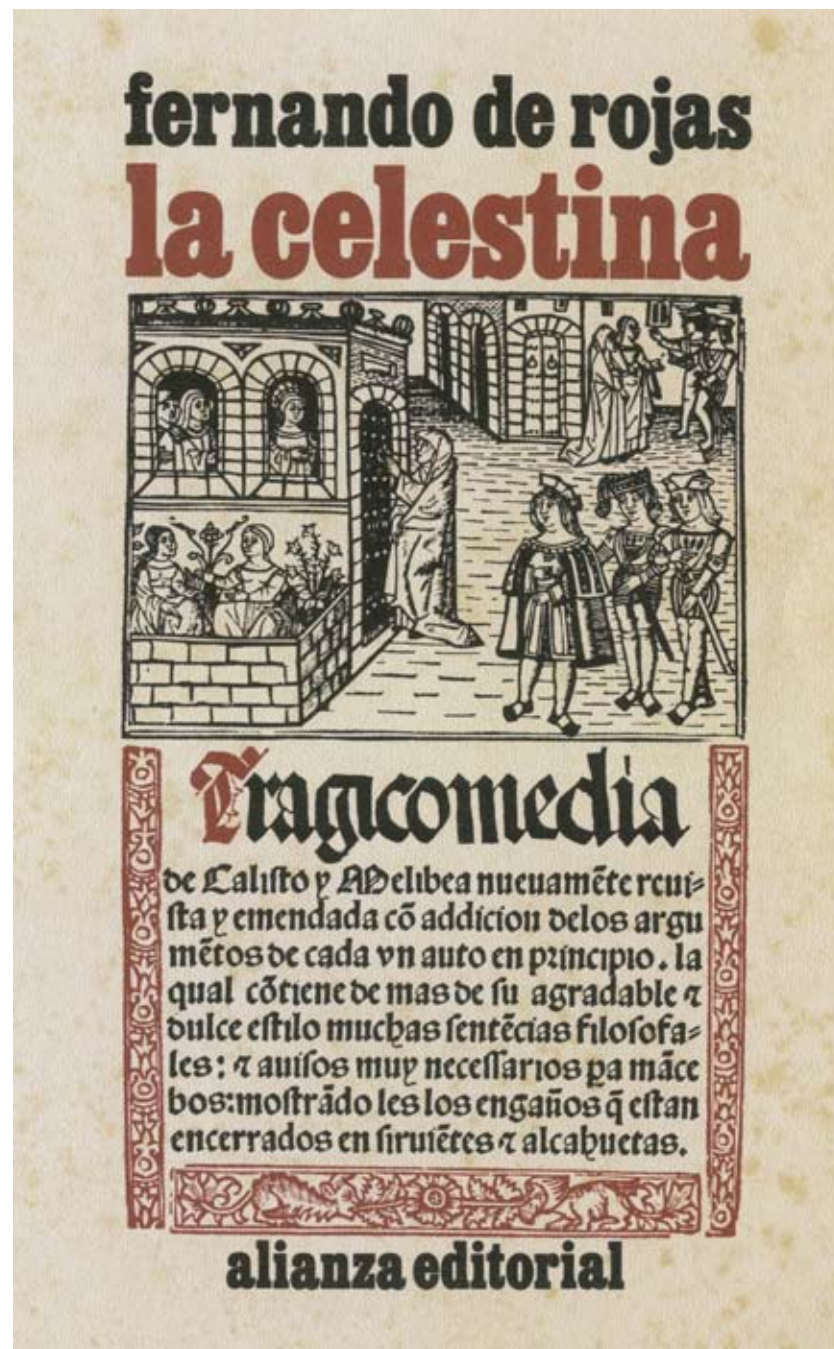 fernando de rojas
la celestina
Tragicomedia
de Calisto y Melibea nueuamẽte reui⸗
sta y emendada cõ addicion delos argu
mẽtos de cada vn auto en principio. la
qual cõtiene de mas de su agradable ⁊
dulce estilo muchas sentẽcias filosofa⸗
les: ⁊ auisos muy necessarios ꝑa mãce
bos: mostrãdo les los engaños q̃ estan
encerrados en siruiẽtes ⁊ alcahuetas.
alianza editorial